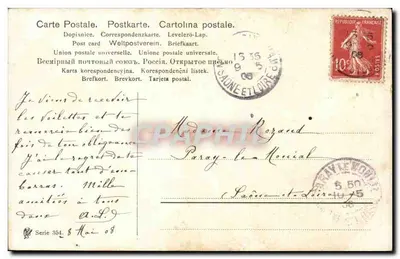 Carte Postale. Postkarte. Cartolina postale.
Dopisnice. Correspondenzkarte. Levelező-Lap.
Post card Weltpostverein. Briefkaart.
Union postale universelle. Unione postale universale.
Всемірный почтовый союзъ. Россія. Открытое письмо
Karta korespondencyjna. Korespondenční lístek.
Brefkort. Brevkort. Tarjeta postal.
RÉPUBLIQUE FRANÇAISE
10
15 15
9 5
06
SAONE-ET-LOIRE
Je viens de recevoir
les violettes et te
remercie bien des
fois de ton obligeance
J'ai le regret de te
causer tant d'em-
barras. Mille
amitiés à tous
deux (A.L)
Madame Rozand
Paray le Monial
Saône-et-Loire
PARAY-LE-MONIAL
5 50
10 5
Serie 304. 8 Mai 06